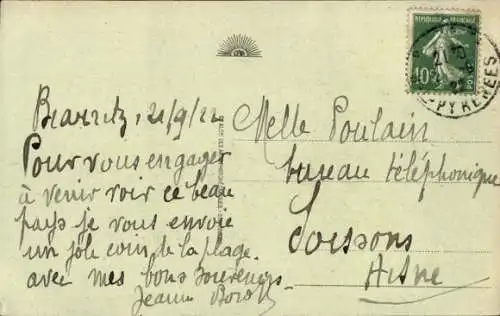 Biarritz, 21/9/22
Pour vous engager
à venir voir ce beau
pays je vous envoie
un joli coin de la plage.
avec mes bons souvenirs
Jeanne
Melle Poulain
bureau téléphonique
Soissons
Aisne
REPUBLIQUE FRANÇAISE
10c
PYRENEES